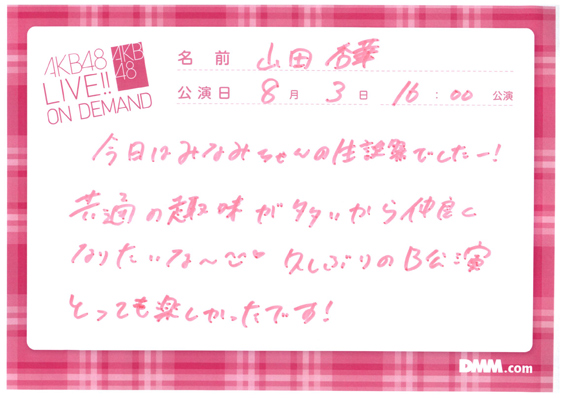 AKB48
LIVE!!
ON DEMAND
AKB
48
名前 山田杏華
公演日 8月3日 16:00 公演
今日はみなみちゃんの生誕祭でしたー!
共通の趣味が多いから仲良く
なりたいな〜
久しぶりのB公演
とっても楽しかったです!
DMM.com